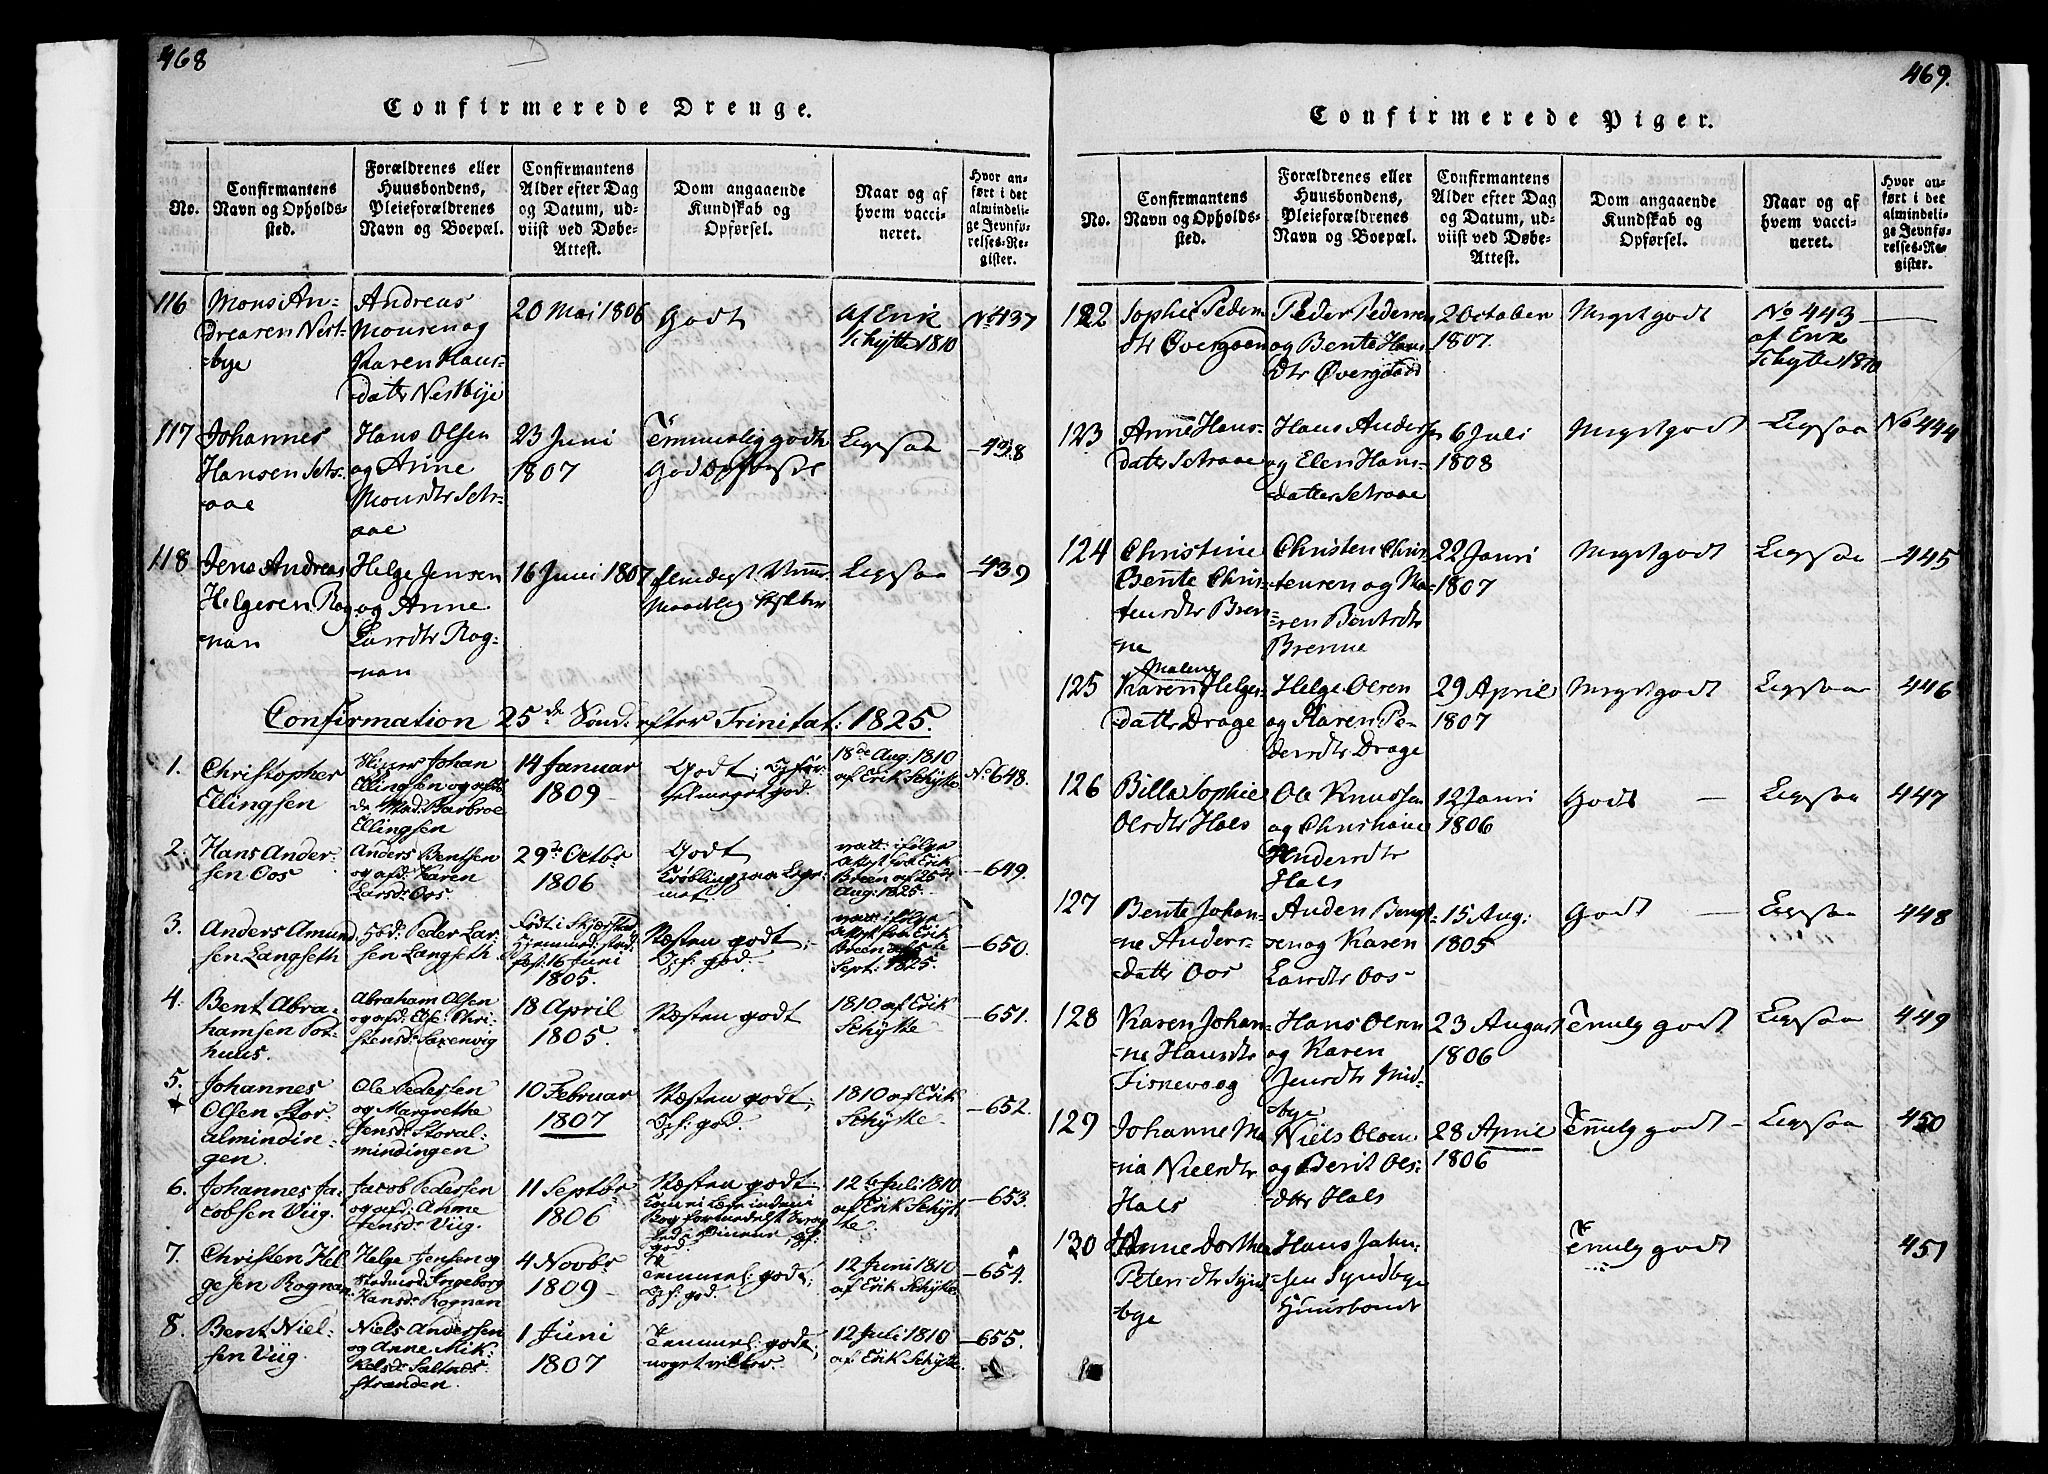 468
Confirmerede Drenge.
No.
Confirmantens
Navn og Opholds-
sted.
Forældrenes eller
Huusbondens,
Pleieforældrenes
Navn og Boepæl.
Confirmantens
Alder efter Dag
og Datum, ud-
viist ved Døbe-
Attest.
Dom angaaende
Kundskab og
Opførsel.
Naar og af
hvem vacci-
neret.
Hvor an-
ført i det
almindeli-
ge Jevnfø-
relses-Re-
gister.
116
Mons An-
dreasen Nest-
=bye
Andreas
Monsen og
Karen Hans-
datter Nestbye
20 Mai 1806
Godt
af Erik
Schytte 1810
No 437
117
Johannes
Hansen Sets-
aae
Hans Olsen
og Anne
Monsdtr Sets-
aae
23 Juni
1807
Temmelig godt
Ligesaa
118
Jens Andreas
Helgesen Rog
=nan
Helge Jensen
og Anne
Larsdtr Rog-
=nan
16 Juni 1807
Ligesaa
-439
Confirmation 25de Sønd. efter Trinitat: 1825.
1.
Christopher
Ellingsen
Johan
Ellingsen og
Mad: Barbroe
Ellingsen
14 Januar
1809-
Godt; Opfør:
sel meget god.
18de Aug: 1810
af Erik Schytte.
No 648.
2.
Hans Ander-
sen Oos
Anders Bentsen
og afd: Karen
Larsd: Oos.
29de Octbr
1806
Godt
Aug: 1825.
-649.
3.
Anders Amund
sen Langseth
Peder Lar-
sen Langseth
16 Juni
1805.
Næsten godt;
Opf: god.
Sept: 1825.
-650.
4.
Bent Abra-
hamsen Por-
huus.
Abraham Olsen
og afd: Else Chri-
stensd: Saxenvig
18 April
1805.
Næsten godt
1810 af Erik
Schytte
-651.
5.
Johannes
Olsen Stor-
almindin-
gen.
Ole Pedersen
og Margrethe
Jensd: Storal-
mindingen
10 Februar
1807
Næsten godt;
Opf: god.
1810 af Erik
Schytte
-652.
6.
Johannes Ja-
cobsen Viig.
Jacob Pedersen
og afd: Anne
Jensd: Viig.
11 Septbr
1806
Næsten godt;
god.
12te Juli 1810
af Erik Schyt-
te.
-653.
7.
Christen Hel-
gesen Rognan
Helge Jensen og
Stedmod: Ingeborg
Hansd: Rognan
4 Novbr
1809-
Temmel: godt;
Opf: god.
12 Juni 1810
af Erik Schytte
-654.
8.
Bent Niel-
sen Viig.
Niels Andersen
og Anne Mik-
kelsd: Saltnes-
stranden.
1 Juni
1807
Temmel: godt;
noget
12 Juli 1810
af Erik Schytte.
-655.
469.
Confirmerede Piger.
No.
Confirmantens
Navn og Opholds-
sted.
Forældrenes eller
Huusbondens,
Pleieforældrenes
Navn og Boepæl.
Confirmantens
Alder efter Dag
og Datum, ud-
viist ved Døbe-
Attest.
Dom angaaende
Kundskab og
Opførsel.
Naar og af
hvem vacci-
neret.
Hvor an-
ført i det
almindeli-
ge Jevnfø-
relses-Re-
gister.
122
Sophie Peders
dtr Øvergaen
Peder Pedersen
og Bente Hans
dtr Øvergaard
2 October
1807
Megetgodt
No 443
af Erik
Schytte 1810
123
Anne Hans-
datter Setsaae
Hans Anderse
og Elen Hans-
datter Setsaae
6 Juli
1808
Megetgodt
Ligesaa
No 444
124
Christine
Bente Chris-
tensdtr Bren-
ne
Christen Chris
tensen og Ma-
=ren Bentsdtr
Brenne
22 Janri
1807
Megetgodt
Ligesaa
445
125
Malene
Karen Helges-
datter Drage
Helge Olsen
og Karen Pe-
dersdtr Drage
29 April
1807
Megetgodt
Ligesaa
446
126
Billa Sophie
Olsdtr Hals
Ole Knudsen
og Christiane
Andersdtr
Hals
12 Janri
1806
Godt -
Ligesaa
447
127
Bente Johan-
=ne Anders-
datter Oos
Anders Bengt-
sen og Karen
Larsdtr Oos-
15 Aug:
1805
Godt -
Ligesaa
448
128
Karen Johan-
=ne Hansdtr
Fiskevaag
Hans Olsen
og Karen
Jensdtr Mid-
=bye
23 August
1806
Temlig godt
Ligesaa
449
129
Johanne Ma
=ria Nielsdtr
Hals
Niels Olsen
og Berit Ols-
=dtr Hals
28 April
1806
Temlig godt -
Ligesaa
450
130
Anne Dorthea
Peters=dtr Synd
=bye
Hans Johan-
=sen Syndbye
Huusbond
Temlig godt
451